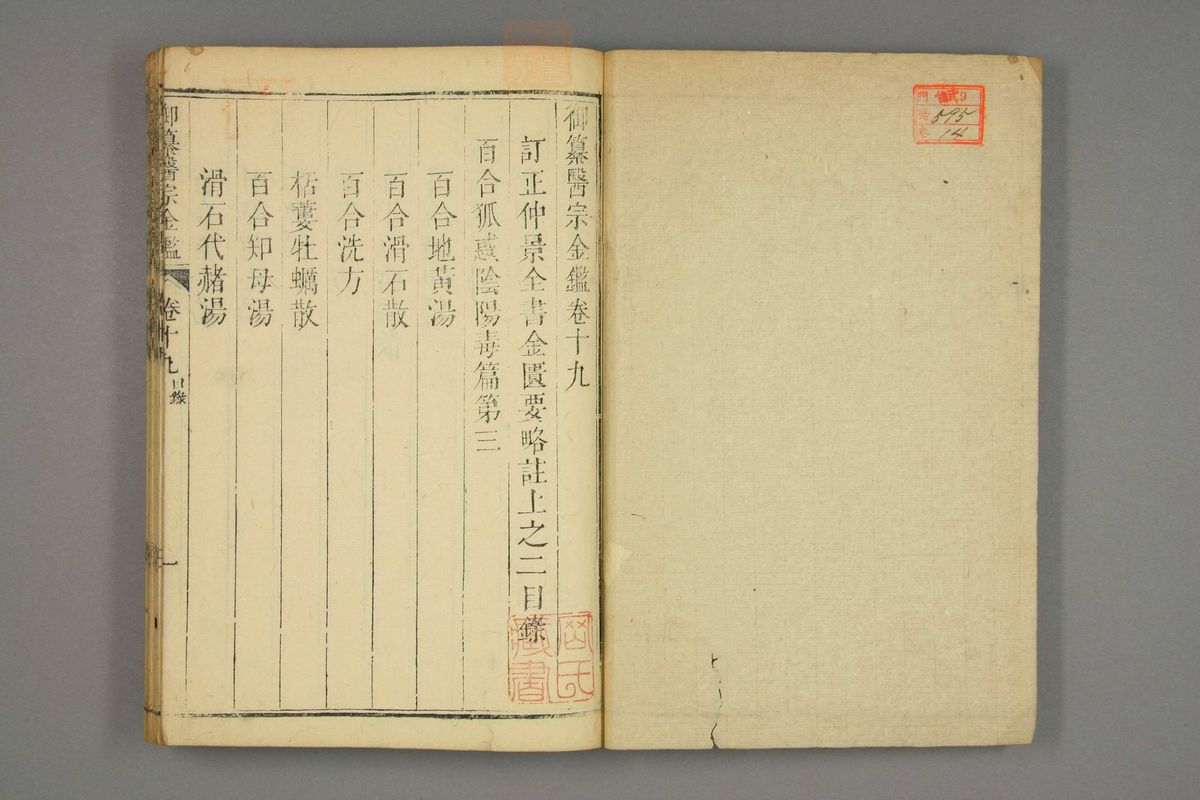 595
14
御纂醫宗金鑑卷十九
訂正仲景全書金匱要略註上之二目錄
百合狐惑陰陽毒篇第三
百合地黃湯
百合滑石散
百合洗方
栝蔞牡蠣散
百合知母湯
滑石代赭湯
御纂醫宗金鑑 卷十九 目錄 一
藏書